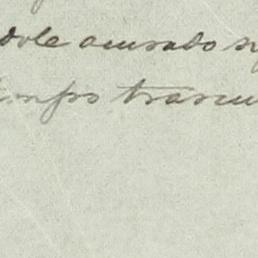 dole acusado s
empo trascu